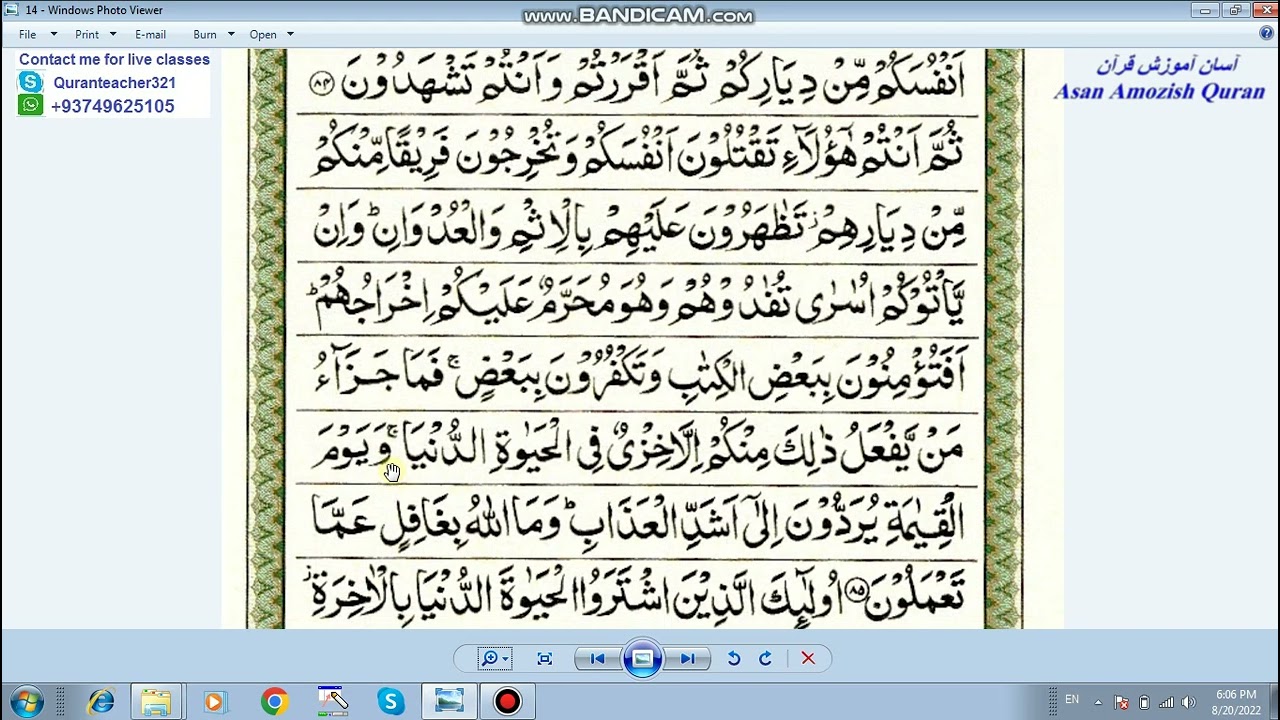 14 - Windows Photo Viewer
www.BANDICAM.com
File Print E-mail Burn Open
Contact me for live classes
Quranteacher321
+93749625105
آسان آموزش قرآن
Asan Amozish Quran
اَنْفُسَكُمْ مِّنْ دِيَارِكُمْ ثُمَّ اَقْرَرْتُمْ وَاَنْتُمْ تَشْهَدُوْنَ ﴿۸۴﴾
ثُمَّ اَنْتُمْ هٰٓؤُلَآءِ تَقْتُلُوْنَ اَنْفُسَكُمْ وَتُخْرِجُوْنَ فَرِيْقًا مِّنْكُمْ
مِّنْ دِيَارِهِمْ ز تَظٰهَرُوْنَ عَلَيْهِمْ بِالْاِثْمِ وَالْعُدْوَانِ ؕ وَاِنْ
يَّاْتُوْكُمْ اُسٰرٰى تُفٰدُوْهُمْ وَهُوَ مُحَرَّمٌ عَلَيْكُمْ اِخْرَاجُهُمْ ؕ
اَفَتُؤْمِنُوْنَ بِبَعْضِ الْكِتٰبِ وَتَكْفُرُوْنَ بِبَعْضٍ ۚ فَمَا جَزَآءُ
مَنْ يَّفْعَلُ ذٰلِكَ مِنْكُمْ اِلَّا خِزْىٌ فِى الْحَيٰوةِ الدُّنْيَا ۚ وَيَوْمَ
الْقِيٰمَةِ يُرَدُّوْنَ اِلٰٓى اَشَدِّ الْعَذَابِ ؕ وَمَا اللّٰهُ بِغَافِلٍ عَمَّا
تَعْمَلُوْنَ ﴿۸۵﴾ اُولٰٓئِكَ الَّذِيْنَ اشْتَرَوُا الْحَيٰوةَ الدُّنْيَا بِالْاٰخِرَةِ ز
EN
6:06 PM
8/20/2022